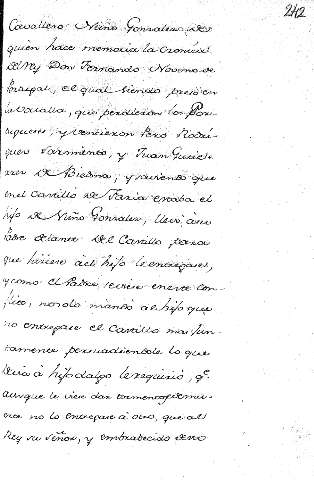 242
Cavallero Nuño Gonzalez, de
quien hace memoria la Cronica
del Rey Don Fernando Noveno de
Portugal, el qual siendo preso en
la Batalla, que perdieron los Por-
tugueses, y vencieron Pero Rodri-
guez Sarmiento, y Juan Gutier-
rez de Biedma, y sabiendo que
en el Castillo de Faria estaba el
hijo de Nuño Gonzalez, llevó à su
Padre delante del Castillo, para
que hiciese à el hijo le entregase,
y como el Padre se viese en este con-
flito, no solo mandó al hijo que
no entregase el Castillo mas jun-
tamente persuadiendole lo que
devia à hijodalgo le requirió, q.e
aunque le viese dar tormentos, y mu-
erte no lo entregase à otro, que al
Rey su Señor, y embrabecido de no